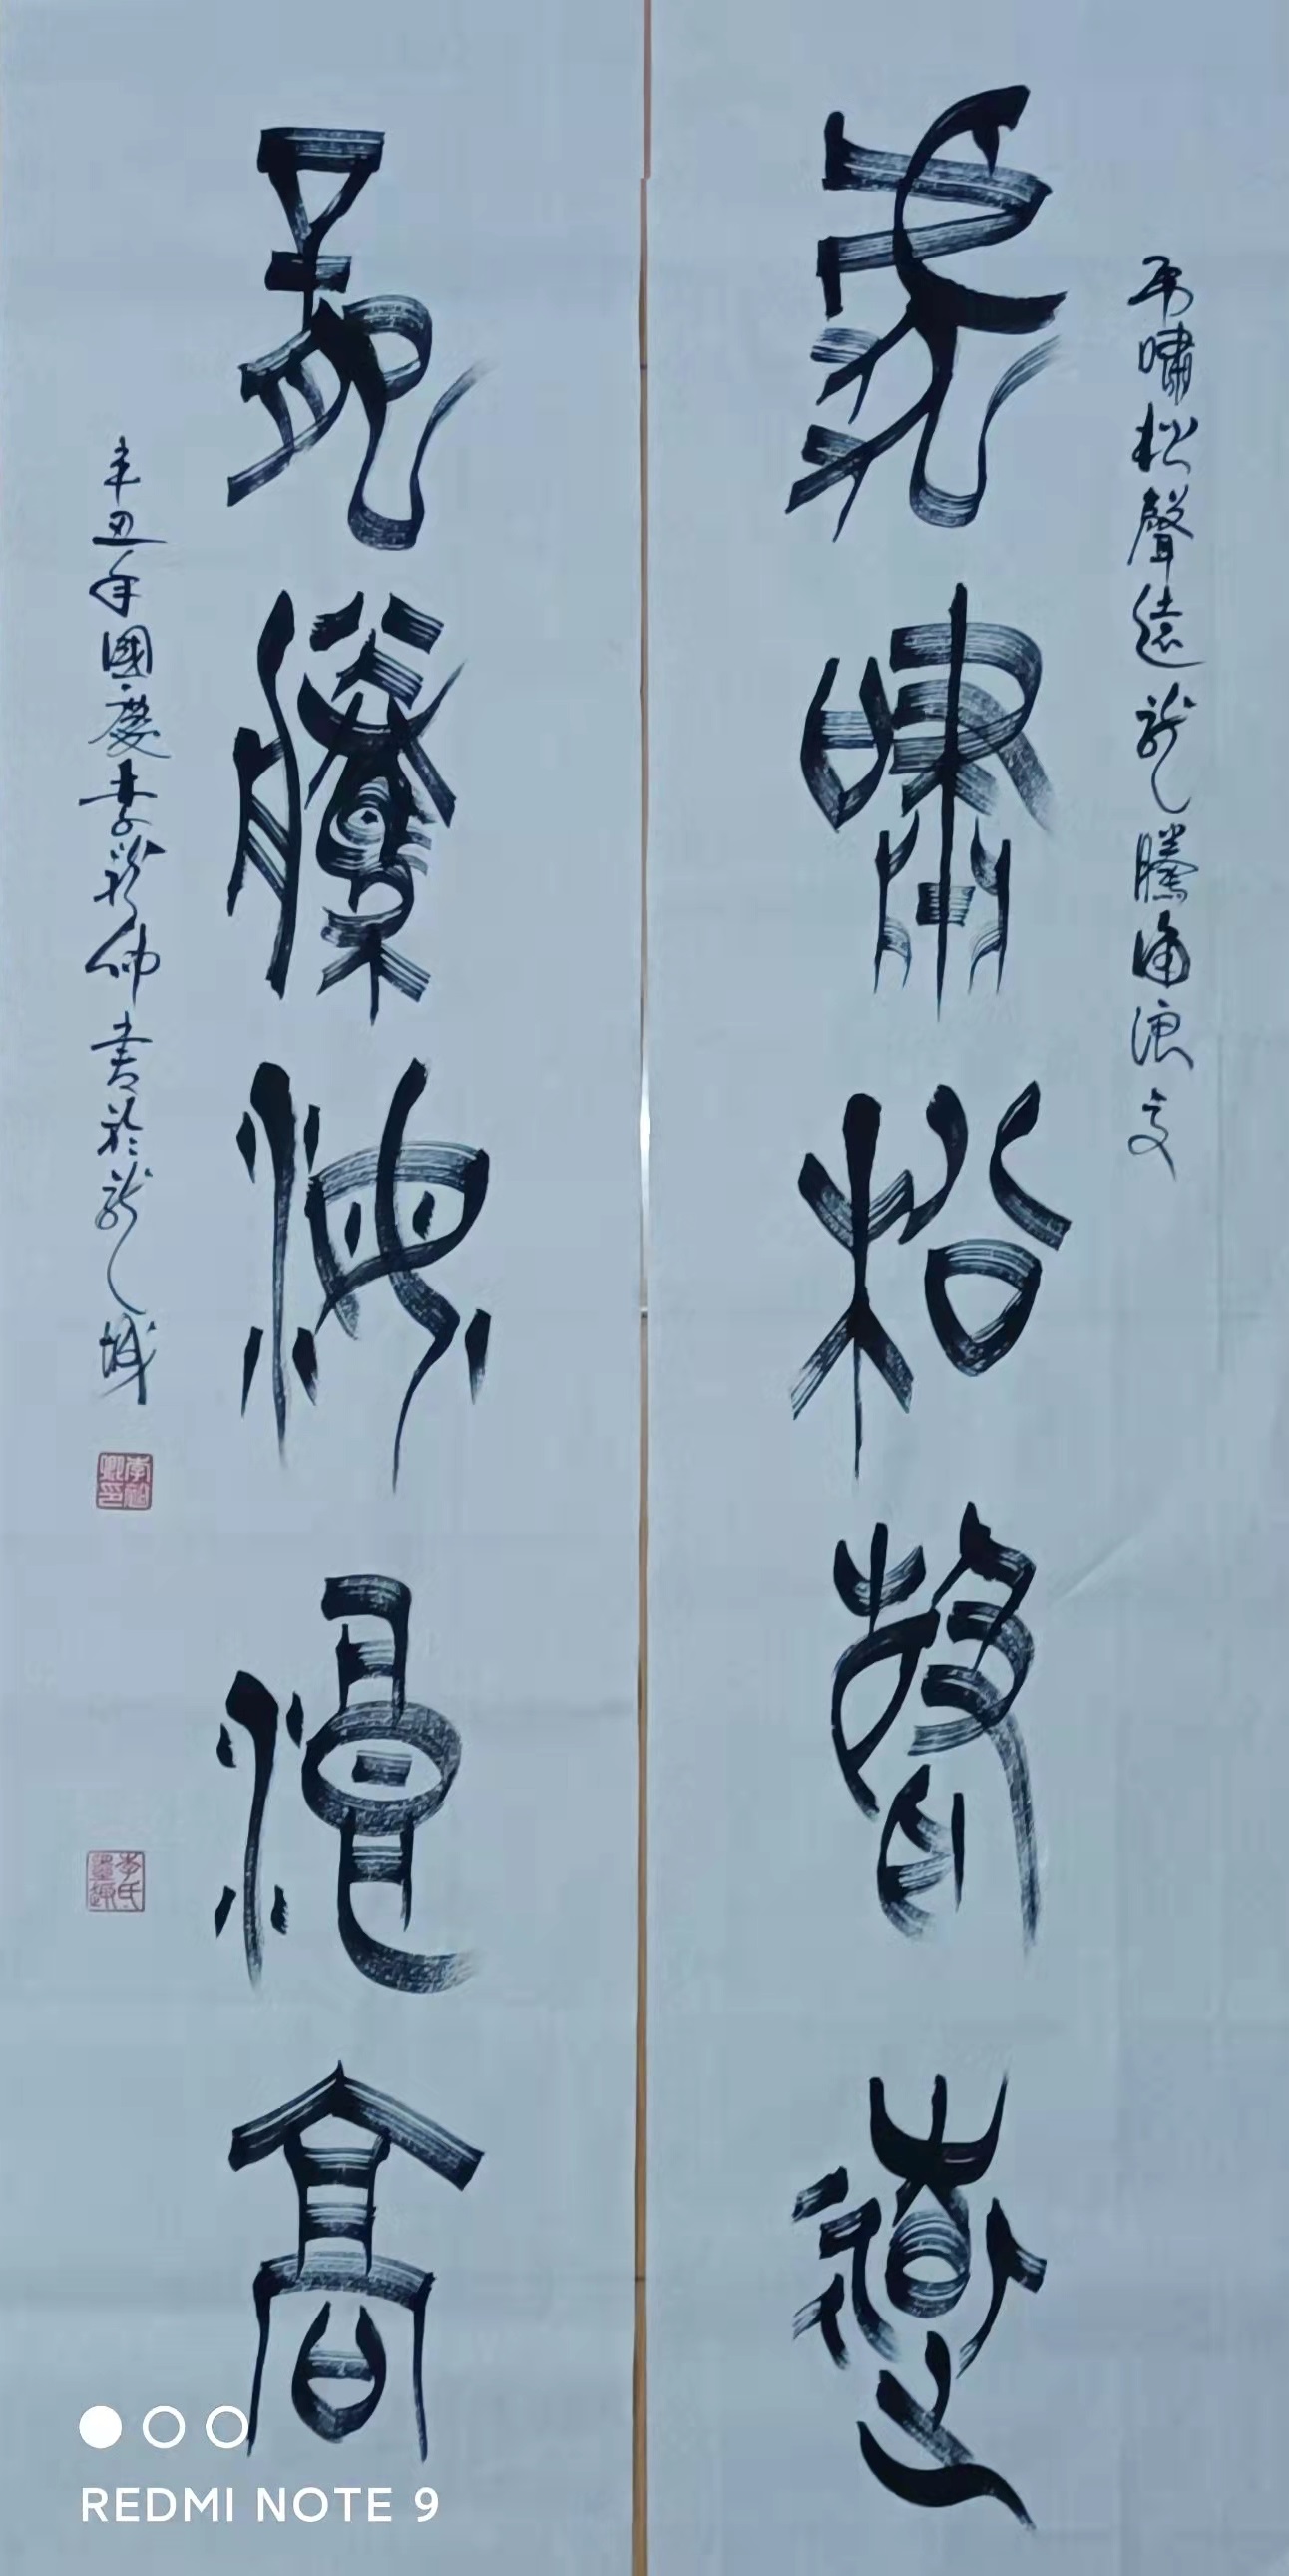 虎嘯松聲遠
虎嘯松聲遠龍騰海浪高
龍騰海浪高
辛丑年國慶李龍仙書於龍城
李氏墨趣
REDMI NOTE 9